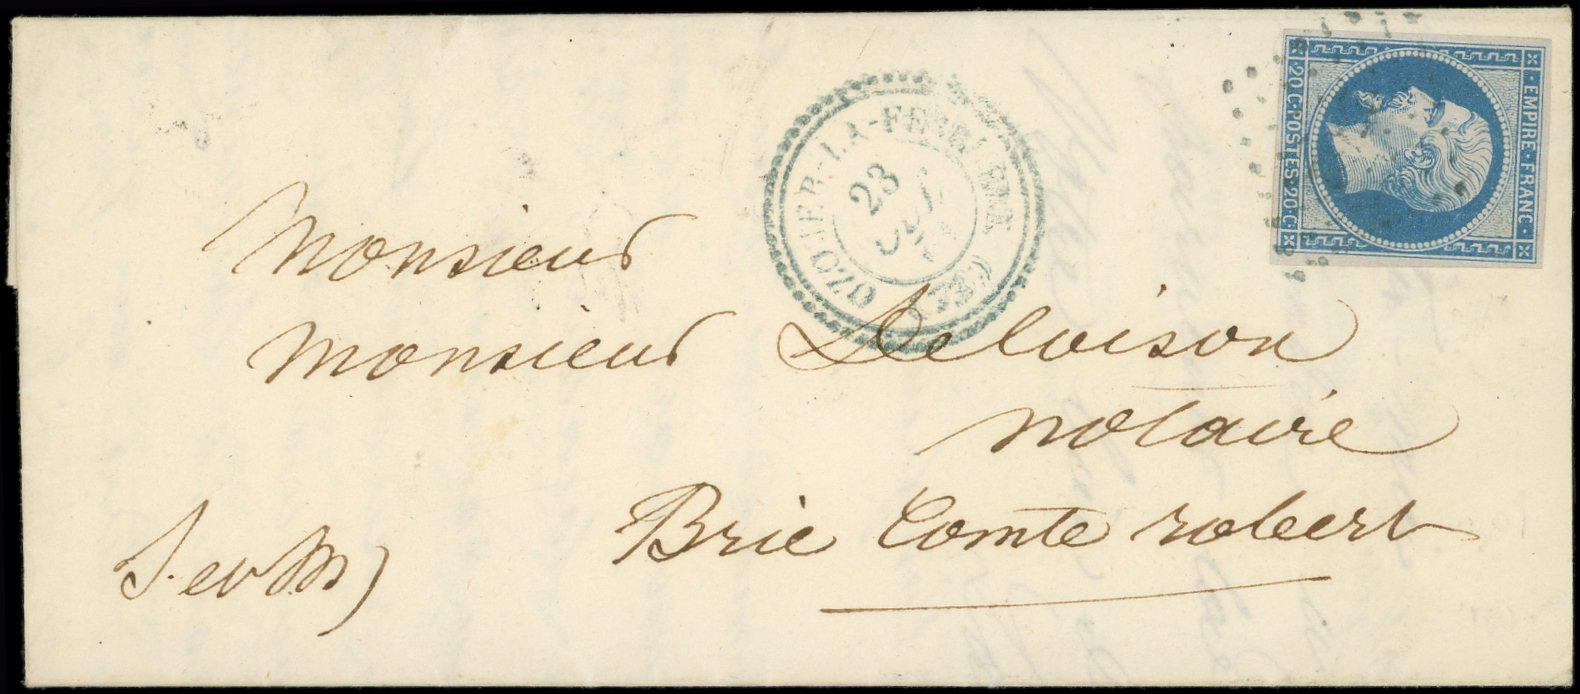 Monsieur
Monsieur Deloison
notaire
Brie Comte robert
S. et M)
OZOUER-LA-FERRIERE
23
(73)
EMPIRE·FRANC·
·20·C·POSTES·20·C·